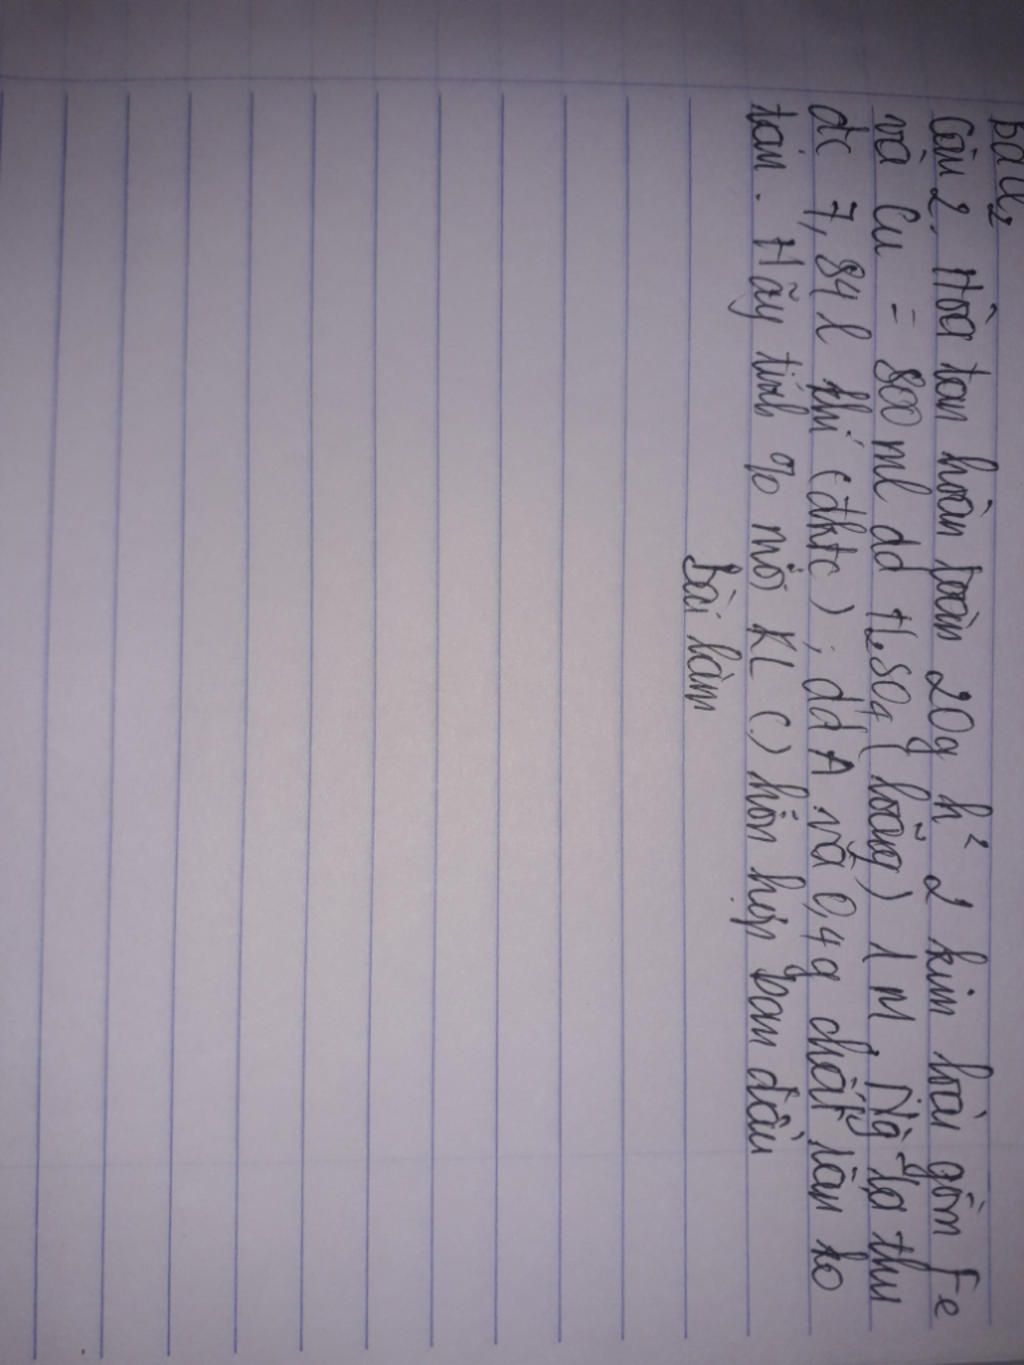 BaCl2
Câu 2. Hòa tan hoàn toàn 20g h² 2 kim loại gồm Fe
và Cu = 800 ml dd H2SO4 (loãng) 1 M. Ng ta thu
đc 7,84 l khí (đktc); dd A và 0,4g chất rắn ko
tan. Hãy tính % mỗi KL (.) hỗn hợp ban đầu
Bài làm